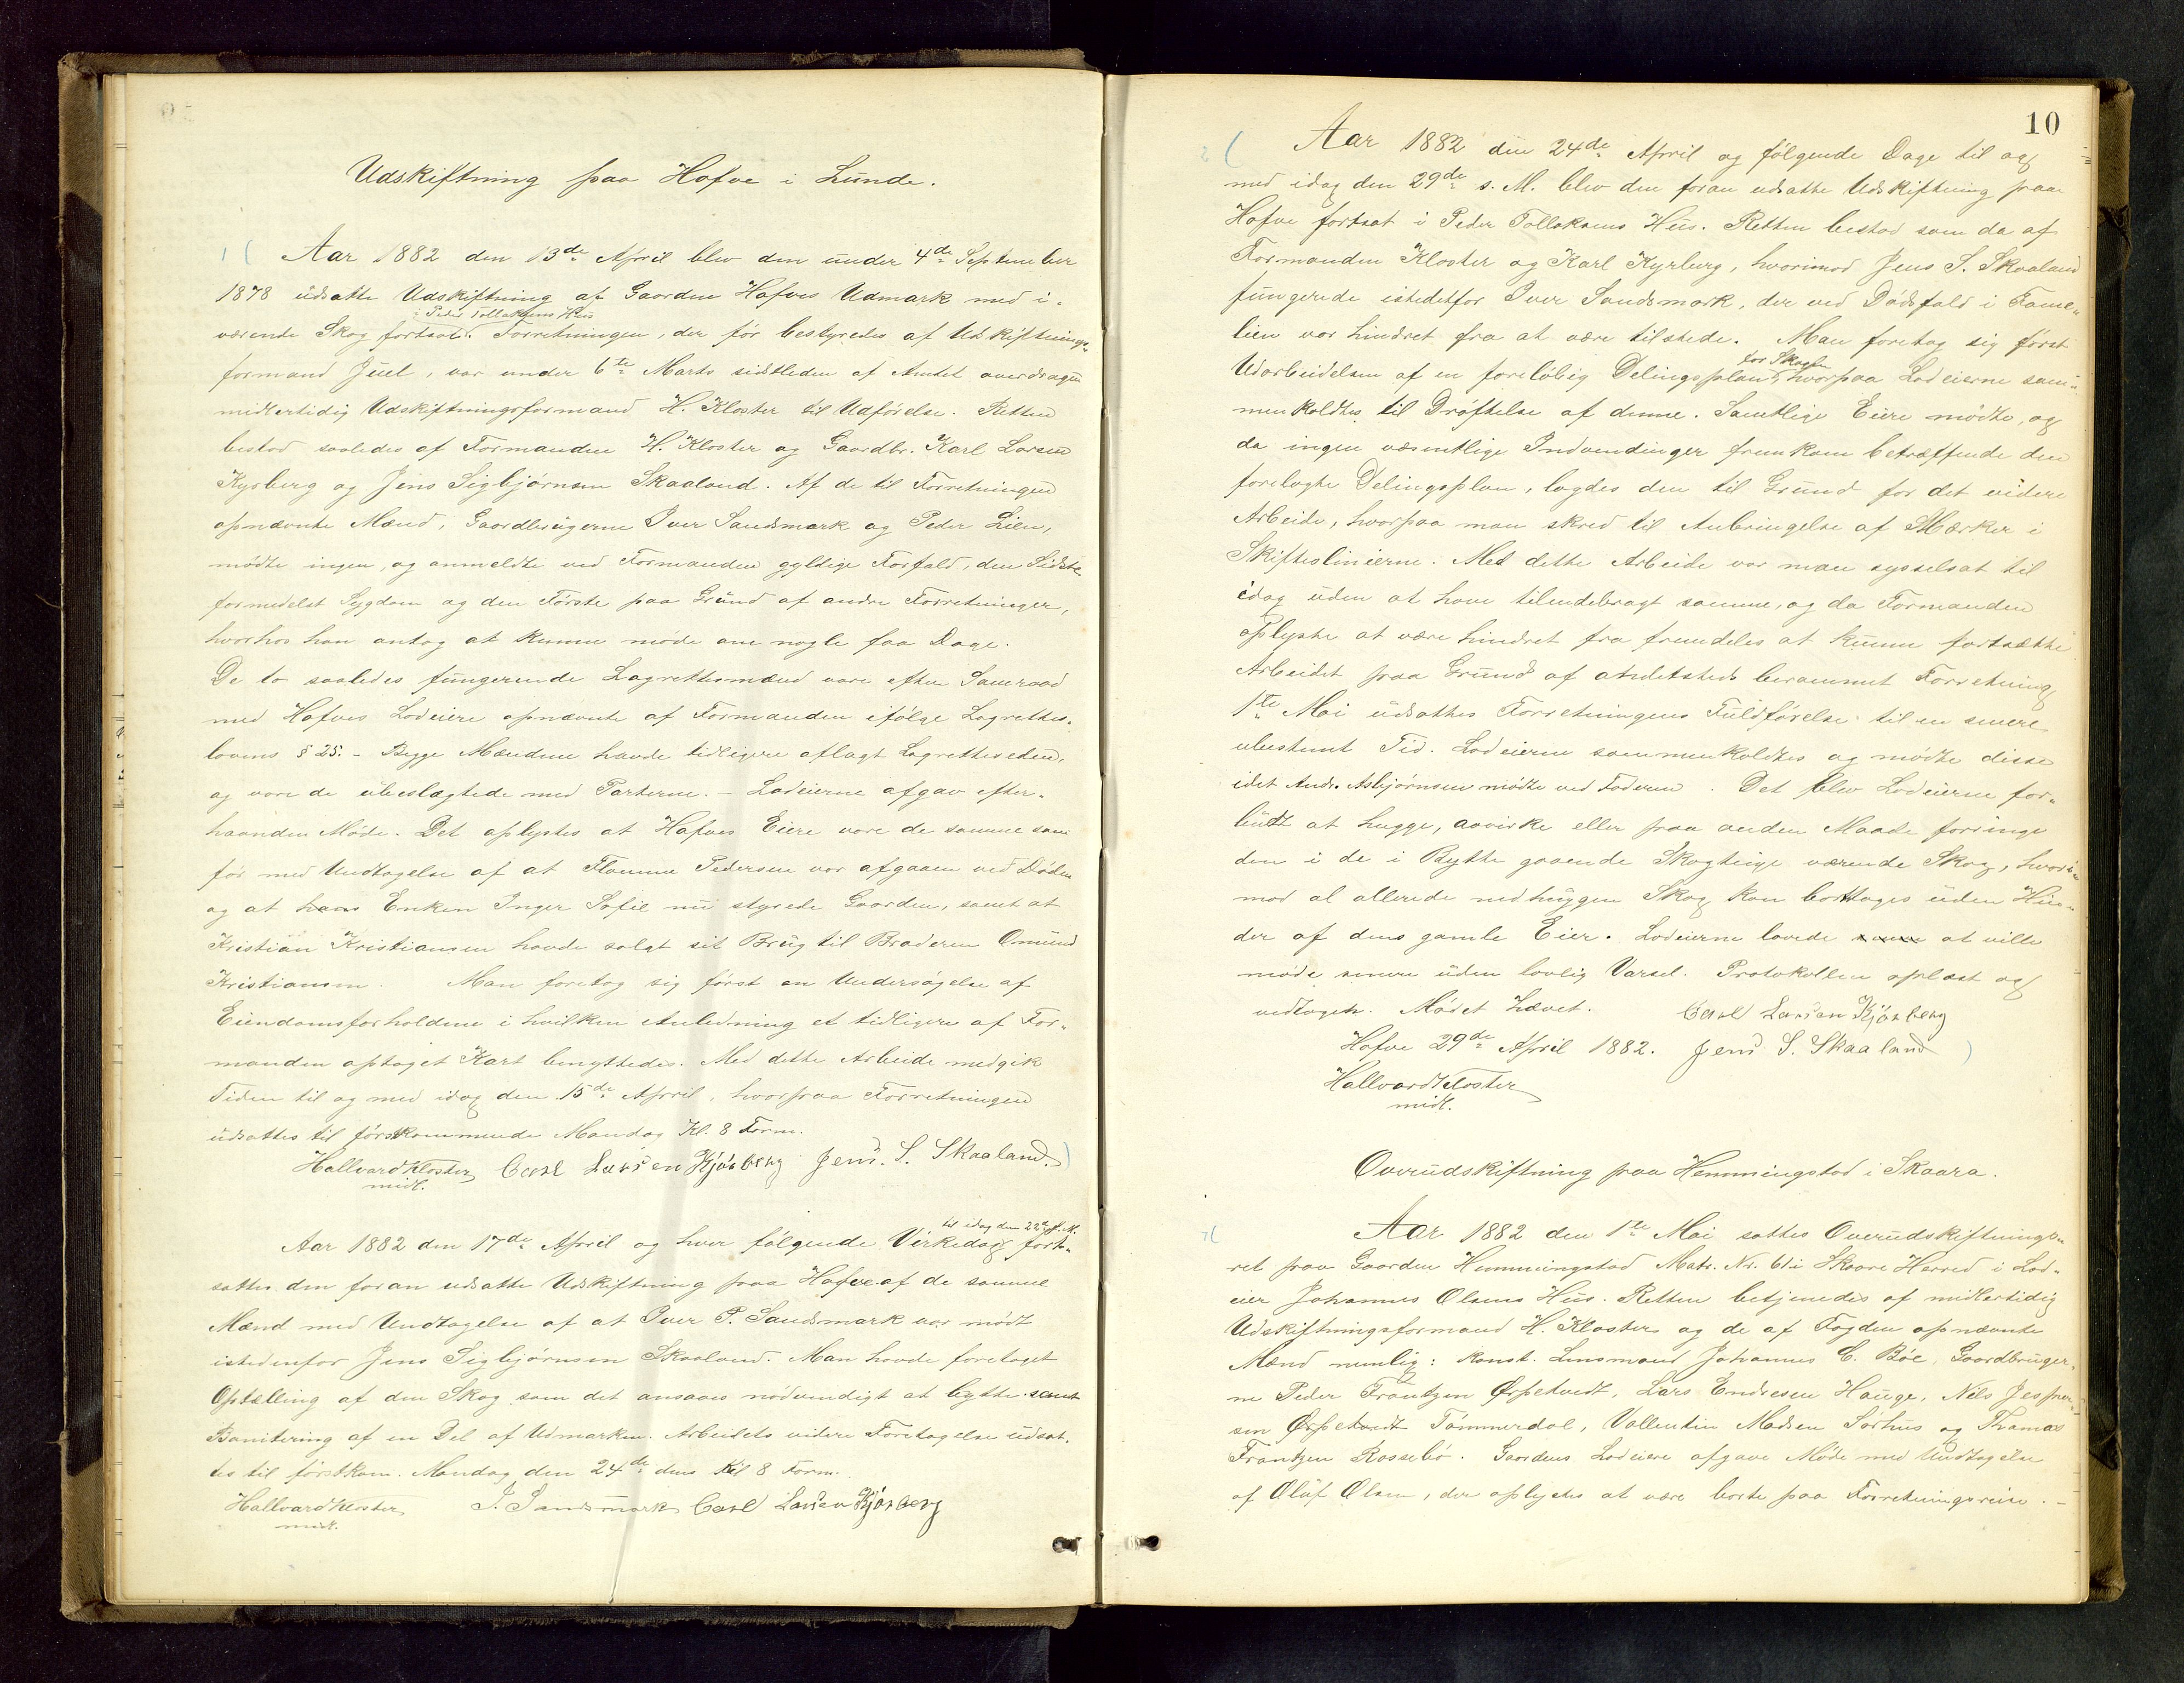 Udskiftning paa Hofve i Lunde.
1( Aar 1882 den 13de April blev den under 4de September
1878 udsatte Udskiftning af Gaarden Hofves Udmark med i-
i Peder Tollaksens Hus
værende Skog fortsat. Forretningen, der før bestyredes af Udskiftnings-
formand Juel, var under 6te Marts sidstleden af Amtet overdragen
midlertidig Udskiftningsformand H. Kloster til Udførelse. Retten
bestod saaledes af Formanden H. Kloster og Gaardbr. Karl Larsen
Kyrberg og Jens Sigbjørnsen Skaaland. Af de til Forretningen
opnævnte Mænd, Gaardbrugerne Iver Sandsmark og Peder Lien,
mødte ingen, og anmeldte ved Formanden gyldige Forfald, den Sidste
formedelst Sygdom og den Første paa Grund af andre Forretninger,
hvorhos han antog at kunne møde om nogle faa Dage.
De to saaledes fungerende Lagrettesmænd vare efter Samraad
med Hofves Lodeiere opnævnte af Formanden ifølge Lagrettes-
lovens § 25. - Begge Mændene havde tidligere aflagt Lagretteseden,
og vare de ubeslægtede med Parterne. - Lodeierne afgav efter-
haanden Møde. Det oplystes at Hofves Eiere vare de samme som
før med Undtagelse af at Flamme Pedersen var afgaaen ved Døden
og at hans Enken Inger Sofie nu styrede Gaarden, samt at
Kristian Kristiansen havde solgt sit Brug til Broderen Omund
Kristiansen. Man foretog sig først en Undersøgelse af
Eiendomsforholdene i hvilken Anledning et tidligere af For-
manden optaget Kart benyttedes. Med dette Arbeide medgik
Tiden til og med idag den 15de April, hvorpaa Forretningen
udsattes til førstkommende Mandag Kl. 8 Form.
Hallvard Kloster Carl Larsen Kjørberg Jens. S. Skaaland.)
midl.
til idag den 22de s. M.
Aar 1882 den 17de April og hver følgende Virkedag fort-
sattes den foran udsatte Udskiftning paa Hofve af de samme
Mænd med Undtagelse af at Iver P. Sandsmark var mødt
istedenfor Jens Sigbjørnsen Skaaland. Man havde foretaget
Optælling af den Skog som det ansaaes nødvendigt at bytte samt
Bonitering af en Del af Udmarken. Arbeidets videre Foretagelse udsat-
tes til førstkom. Mandag den 24de dens Kl 8 Form.
Hallvard Kloster I. Sandsmark Carl Larsen Kjørberg
midl.
10
2( Aar 1882 den 24de April og følgende Dage til og
med idag den 29de s. M. blev den foran udsatte Udskiftning paa
Hofve fortsat i Peder Tollaksens Hus. Retten bestod som da af
Formanden Kloster og Karl Kyrberg, hvorimod Jens S. Skaaland
fungerede istedetfor Iver Sandsmark, der ved Dødsfald i Fami-
lien var hindret fra at være tilstede. Man foretog sig først
for Skogen
Udarbeidelsen af en foreløbig Delingsplan, hvorpaa Lodeierne sam-
menkaldtes til Drøftelse af denne. Samtlige Eiere mødte, og
da ingen væsentlige Indvendinger fremkom betræffende den
forelagte Delingsplan, lagdes den til Grund for det videre
Arbeide, hvorpaa man skred til Anbringelse af Mærker i
Skifteslinierne. Med dette Arbeide var man sysselsat til
idag uden at have tilendebragt samme, og da Formanden
oplyste at være hindret fra fremdeles at kunne fortsætte
Arbeidet paa Grund af andetsteds berammet Forretning
1ste Mai udsattes Forretningens Fuldførelse til en senere
ubestemt Tid. Lodeierne sammenkaldtes og mødte disse
idet Andr. Asbjørnsen mødte ved Faderen. Det blev Lodeierne for-
budt at hugge, avvirke eller paa anden Maade forringe
den i de i Bytte gaaende Skogteige værende Skog, hvori-
mod al allerede nedhuggen Skog kan borttages uden Hin-
der af dens gamle Eier. Lodeierne lovede at ville
møde senere uden lovlig Varsel. Protokollen oplæst og
vedtagen. Mødet hævet. Carl Larsen Kjørberg
Hofve 29de April 1882. Jens S. Skaaland )
Hallvard Kloster
midl.
Overudskiftning paa Hemmingstad i Skaara.
7( Aar 1882 den 1ste Mai sattes Overudskiftnings-
ret paa Gaarden Hemmingstad Matr. Nr. 61 i Skaare Herred i Lod-
eier Johannes Olsens Hus. Retten betjenedes af midlertidig
Udskiftningsformand H. Kloster og de af Fogden opnævnte
Mænd nemlig: konst. Lensmand Johannes C. Bøe, Gaardbruger-
ne Peder Frantzen Ørpetvedt, Lars Endresen Hauge, Nels Jesper-
sen Ørpetvedt Tømmerdal, Vallentin Madsen Sørhus og Thomas
Frantzen Rossebø. Gaardens Lodeiere afgave Møde med Undtagelse
af Oluf Olsen, der oplystes at være borte paa Forretningsreise. -